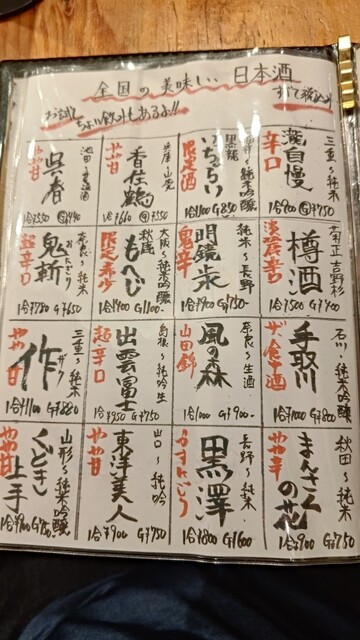 全国の美味しい 日本酒
お試し ちょい飲みもあるよ!!
すべて税込み
三重〜純米
瀧自慢
辛口
1合¥900 G¥750
福井〜純米吟醸
黒龍
いっちょらい
限定酒
1合¥1100 G¥850
兵庫〜山廃
香住鶴
やや甘
1合¥660 G¥350
池田〜本醸造
呉春
やや甘
G¥440
吉野杉
樽酒
淡麗辛口
1合¥500 G¥400
純米〜長野
明鏡止水
鬼辛
1合¥900 G¥750
大阪〜純米吟醸
秋鹿
もへじ
限定希少
1合¥1400 G¥1100
奈良〜純米
鬼斬
おにぎり
超辛口
1合¥780 G¥650
石川〜純米
手取川
ザ・食中酒
1合¥1000 G¥800
奈良〜生酒
風の森
山田錦
1合¥1000 G¥900
島根〜純吟生
出雲富士
超辛口
1合¥950 G¥750
三重〜純米
作
ザク
やや甘
1合¥1100 G¥880
秋田〜純米
まんさくの花
やや辛
1合¥900 G¥750
長野〜純米
黒澤
うすにごり
1合¥800 G¥600
山口〜純吟
東洋美人
やや甘
1合¥900 G¥750
山形〜純米吟醸
くどき上手
やや甘
1合¥900 G¥750